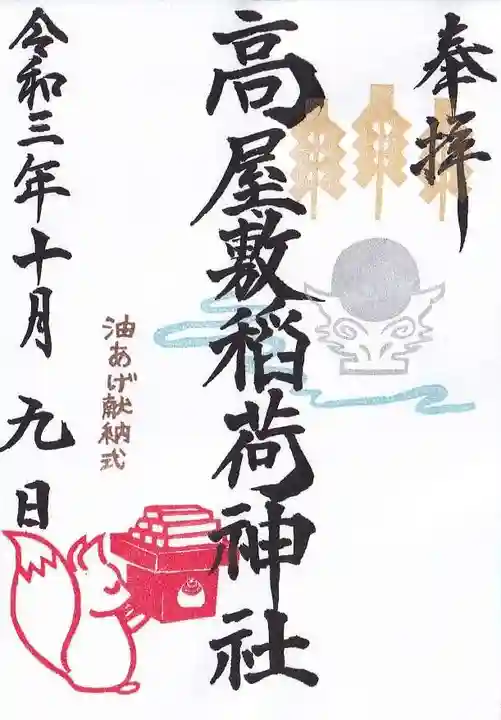 奉拝
高屋敷稲荷神社
油あげ献納式
令和三年十月九日